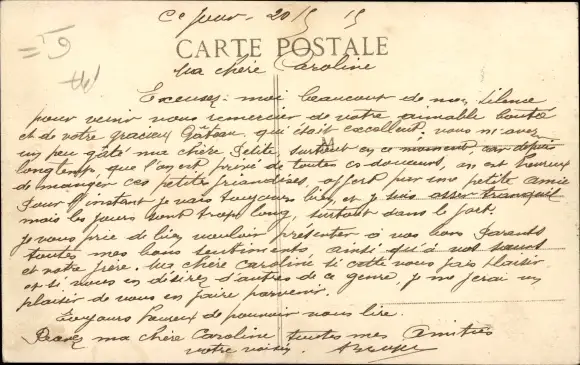 Ce Jour 20/5 15
CARTE POSTALE
Ma chère Caroline
Excusez-moi beaucoup de mon silence
pour venir vous remercier de votre aimable bonté
et de votre gracieux Gâteau, qui était excellent, vous m'avez
un peu gâté ma chère Petite surtout en ce moment, car depuis
longtemps, que l'on est privé de toutes ces douceurs, on est heureux
de manger ces petites friandises, offert par une petite amie
Pour l'instant je vais toujours bien, et je suis assez tranquil
mais les jours sont trop long, surtout dans le fort.
Je vous prie de bien vouloir présenter à vos bons Parents
toutes mes bons sentiments, ainsi qu'à vos sœurs
et votre frère. Ma chère Caroline si cette vous fais plaisir
et si vous en désirez d'autres de ce genre, je me ferai un
plaisir de vous en faire parvenir.
Toujours heureux de pouvoir vous lire.
Recevez ma chère Caroline toutes mes Amitiés
votre voisin